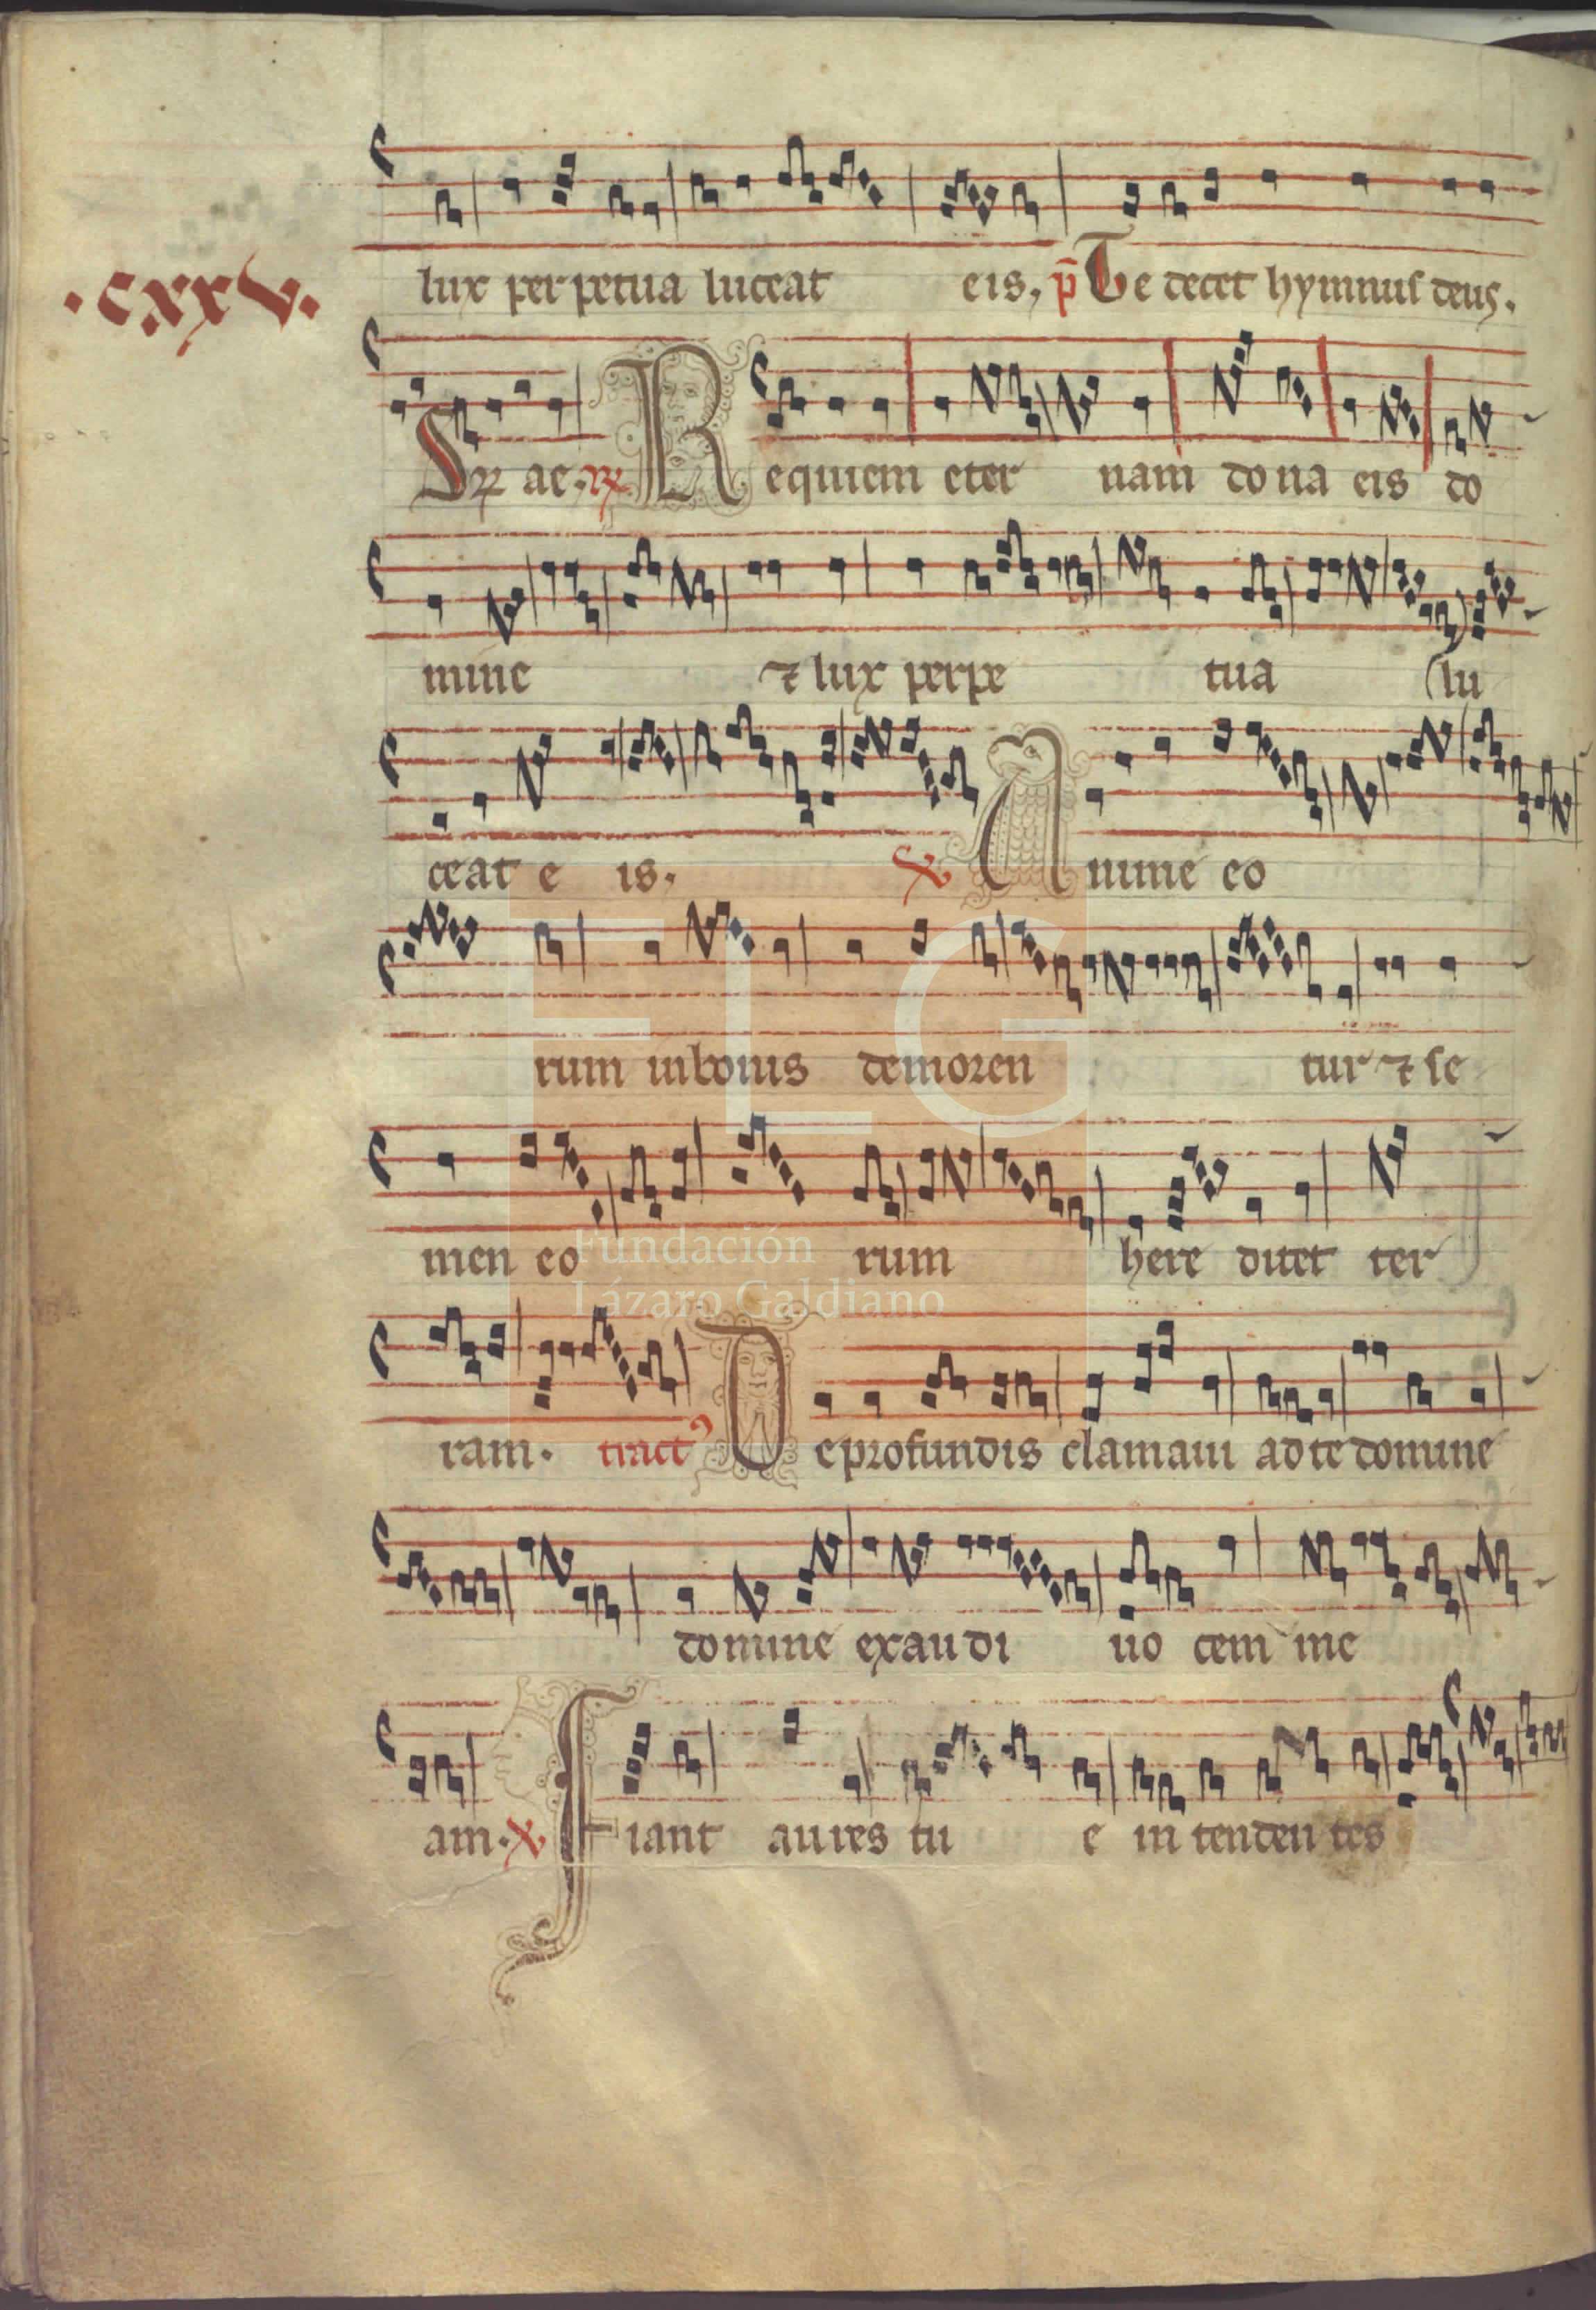 .cxxv.
lux perpetua luceat eis, p̄ Te decet hymnus deus.
ae. Requiem eter nam dona eis do
mine ⁊ lux perpe tua lu
ceat e is. Anime eo
rum in bonis demoren tur ⁊ se
men eo rum here ditet ter
ram. tractꝰ De profundis clamaui ad te domine
domine exaudi uo cem me
am. Fiant aures tu e in tenden tes
FLG
Fundación
Lázaro Galdiano